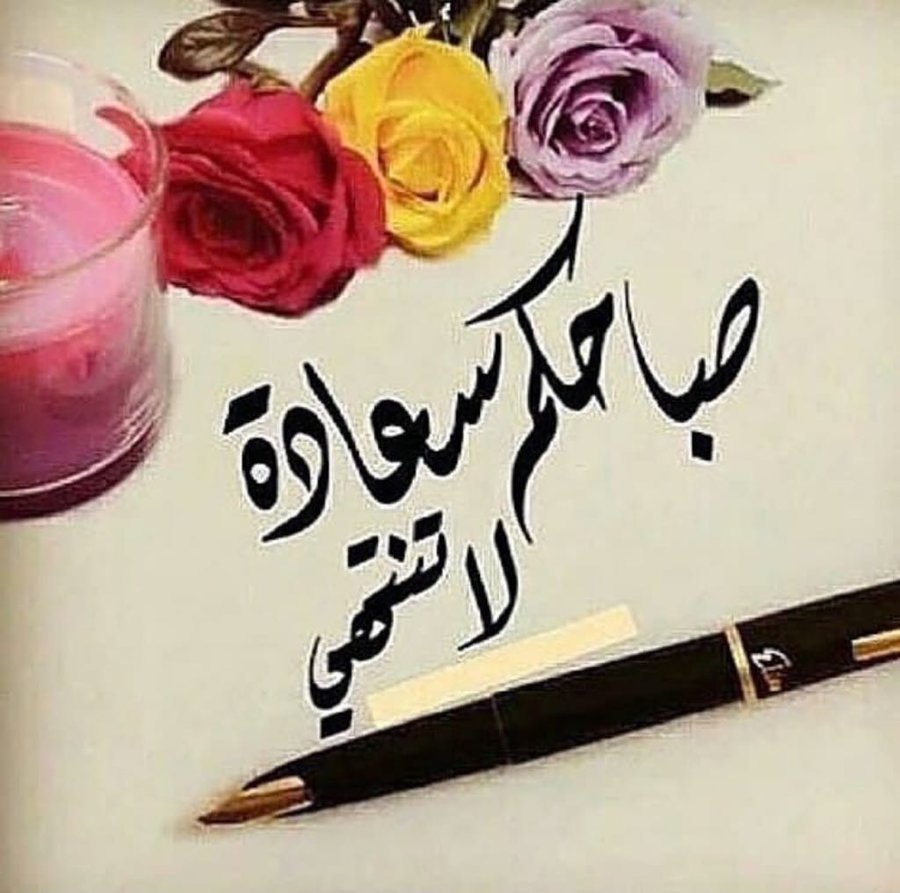 صباحكم سعادة
لا تنتهي